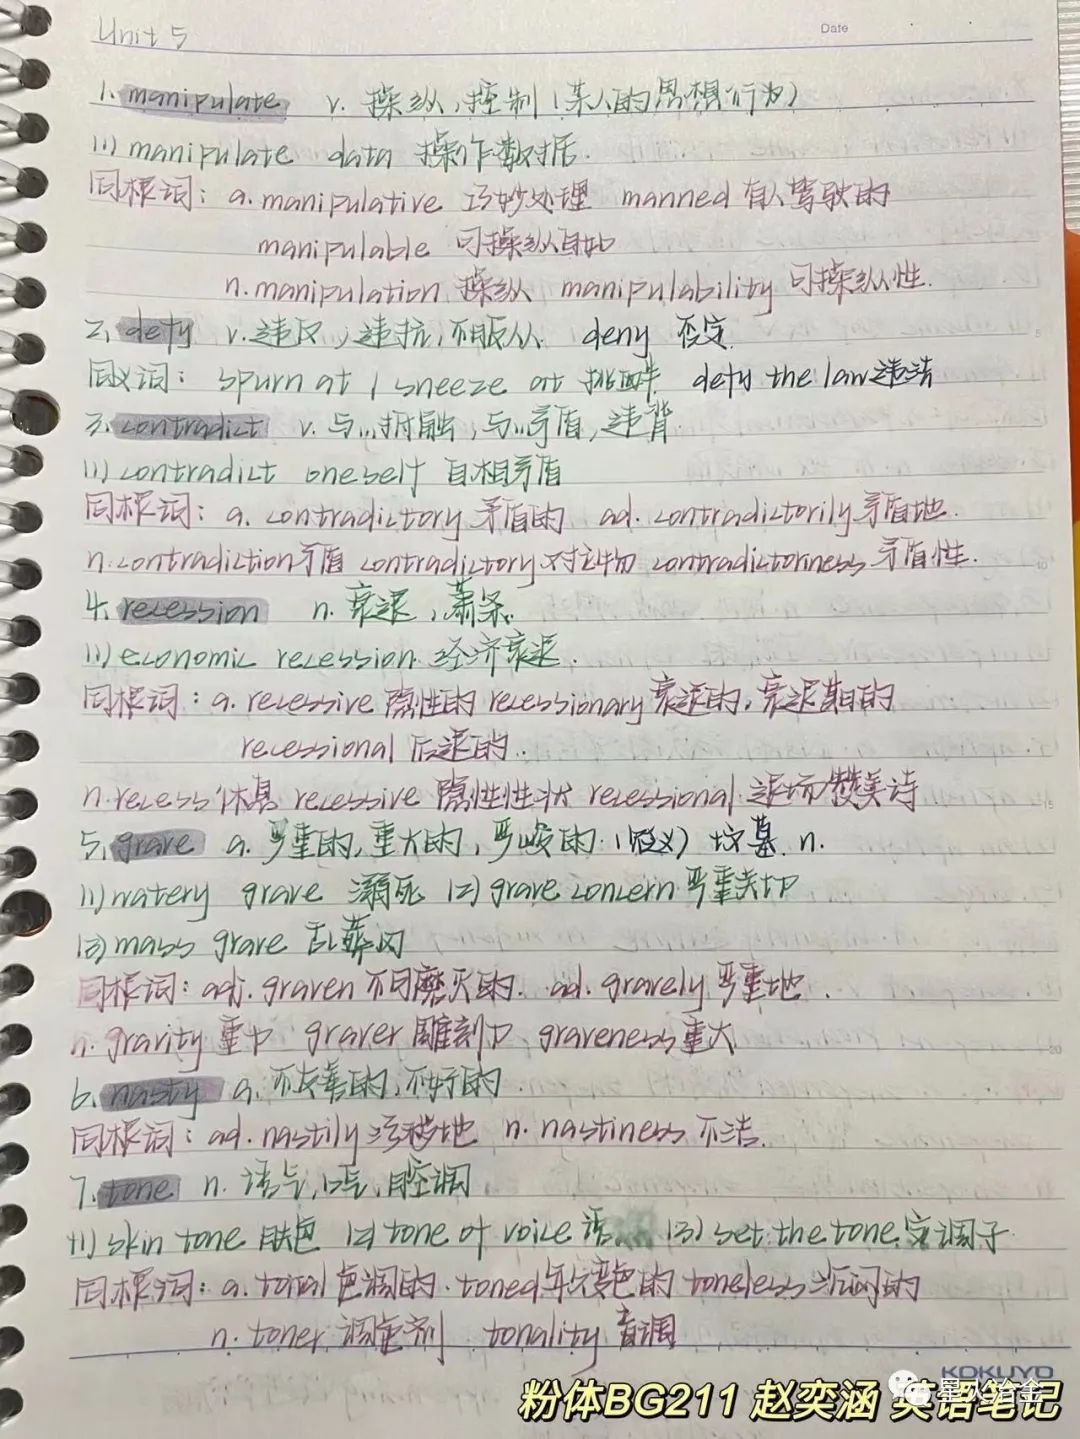 Unit 5
Date
1. manipulate v. 操纵,控制(某人的思想/行为)
(1) manipulate data 操作数据.
同根词: a. manipulative 巧妙处理 manned 有人驾驶的
manipulable 可操纵自如
n. manipulation 操纵 manipulability 可操纵性.
2. defy v. 违反,违抗,不服从 deny 否定
同义词: spurn at / sneeze at 挑衅 defy the law 违法
3. contradict v. 与...抵触,与...矛盾,违背
(1) contradict oneself 自相矛盾
同根词: a. contradictory 矛盾的 ad. contradictorily 矛盾地.
n. contradiction 矛盾 contradictory 对立物 contradictoriness 矛盾性.
4. recession n. 衰退,萧条.
(1) economic recession 经济衰退.
同根词: a. recessive 隐性的 recessionary 衰退的,衰退期的
recessional 后退的.
n. recess 休息 recessive 隐性性状 recessional 退场赞美诗
5. grave a. 严重的,重大的,严峻的 坟墓 n.
(1) watery grave 溺死 (2) grave concern 严重关切
(3) mass grave 乱葬岗
同根词: adj. graven 不可磨灭的. ad. gravely 严重地.
n. gravity 重力 graver 雕刻刀 graveness 重大
6. nasty a. 不友善的,不好的.
同根词: ad. nastily 污秽地 n. nastiness 不洁.
7. tone n. 语气,口气,腔调
(1) skin tone 肤色 (2) tone of voice 语 (3) set the tone 定调子
同根词: a. tonal 色调的. toned 年久变色的 toneless 沉闷的
n. toner 调色剂 tonality 音调
KOKUYO
星火冶金
粉体BG211 赵奕涵 英语笔记